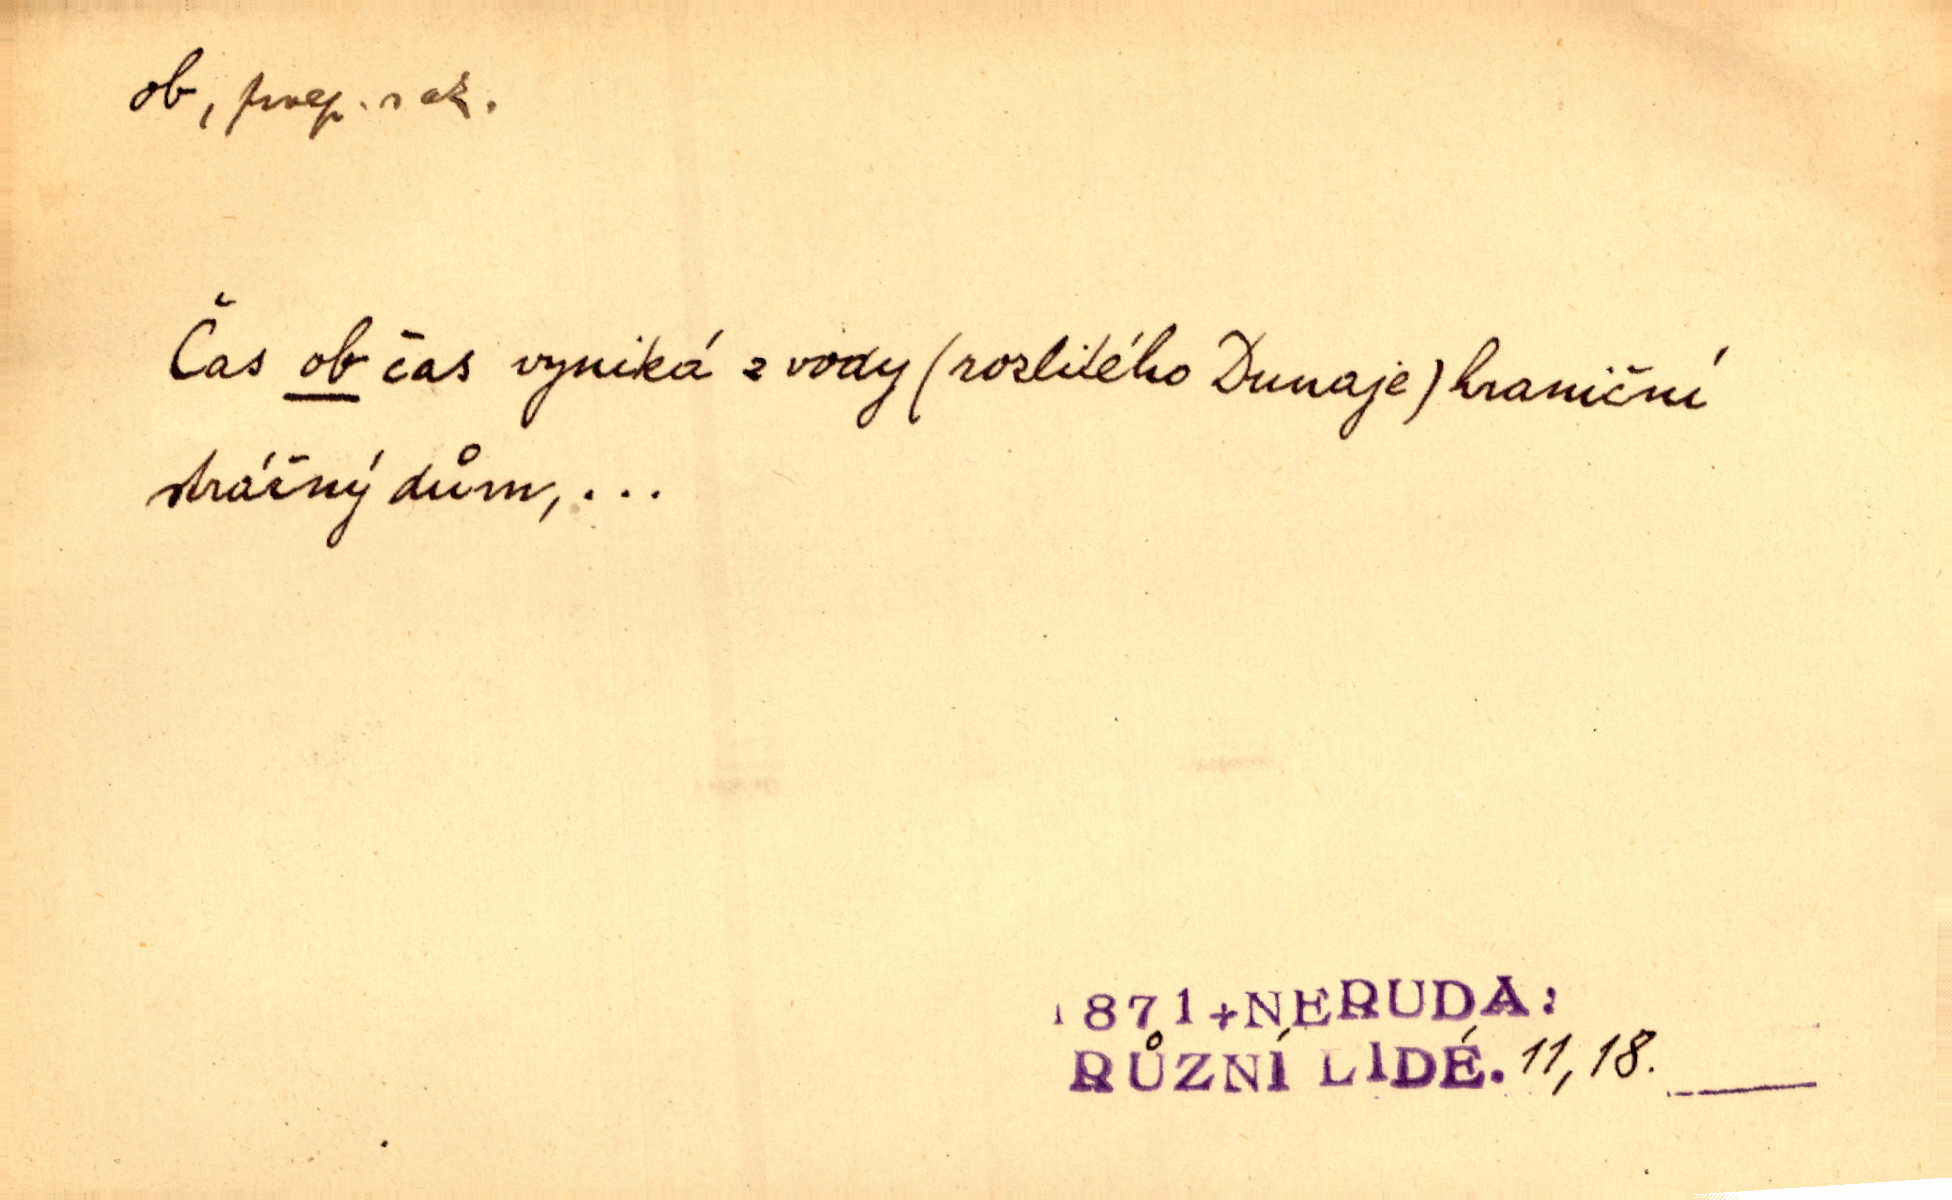 ob, prep. s ak.
Čas ob čas vyniká z vody (rozlitého Dunaje) hraniční
strážný dům, ...
1871+NERUDA:
RŮZNÍ LIDÉ. 11, 18.